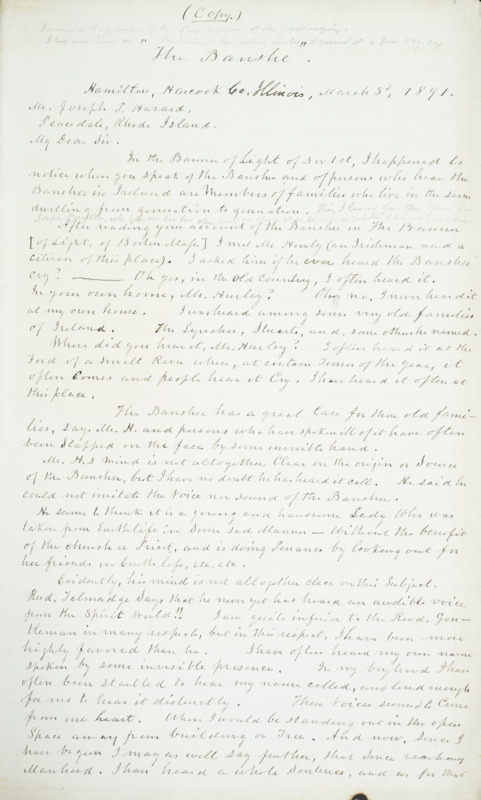 (Copy.)
The Banshee.
Hamilton, Hancock Co. Illinois, March 3d, 1891.
Mr. Joseph P. Hazard,
Peacedale, Rhode Island.
My Dear Sir.
In the Banner of Light of Nov 1st, I happened to
notice when you speak of the Banshee and of persons who hear the
Banshee in Ireland are Members of families who live in the same
dwelling from generation to generation.
After reading your account of the Banshee in The Banner
[of Light, of Boston Mass.] I met Mr. Hurly (an Irishman and a
citizen of this place). I asked him if he ever heard the Banshee
cry? ——— Oh yes, in the Old Country, I often heard it.
In your own home, Mr. Hurley? Oh, no, I never heard it
at my own house. I was heard among some very old families
of Ireland. The Lynches, Stuarts, and, some others he named.
When did you hear it, Mr. Hurley? I often heard it at the
Ford of a small River when, at certain Times of the year, it
often Comes and people hear it Cry. I have heard it often at
this place.
The Banshee has a great Care for these old fami-
lies, says Mr. H. and persons who have spoken ill of it have often
been slapped on the face by some invisible hand.
Mr. H.s mind is not altogether Clear on the origin or Source
of the Banshee, but I have no doubt he has heard it call. He said he
could not imitate the Voice nor sound of the Banshee.
He seems to think it is a young and handsome Lady Who was
taken from Earth life in Some Sad Manner — Without the benefit
of the church or Priest, and is doing Penance by looking out for
her friends in Earth life, etc. etc.
Evidently, his mind is not all together clear on this Subject.
Revd. Talmadge Says that he never yet has heard an audible voice
from the Spirit World!! I am quite inferior to the Revd. Gen-
tleman in many respects, but in this respect, I have been more
highly favored than he. I have often heard my own name
spoken by some invisible presence. In my boyhood I have
often been startled to hear my name called, and loud enough
for me to hear it distinctly. These Voices seemed to Come
from one heart. When I would be standing out in the open
Space away from building or Tree. And now, Since I
have begun I may as well say further, that Since reaching
Manhood. I have heard a whole Sentence, and as for that